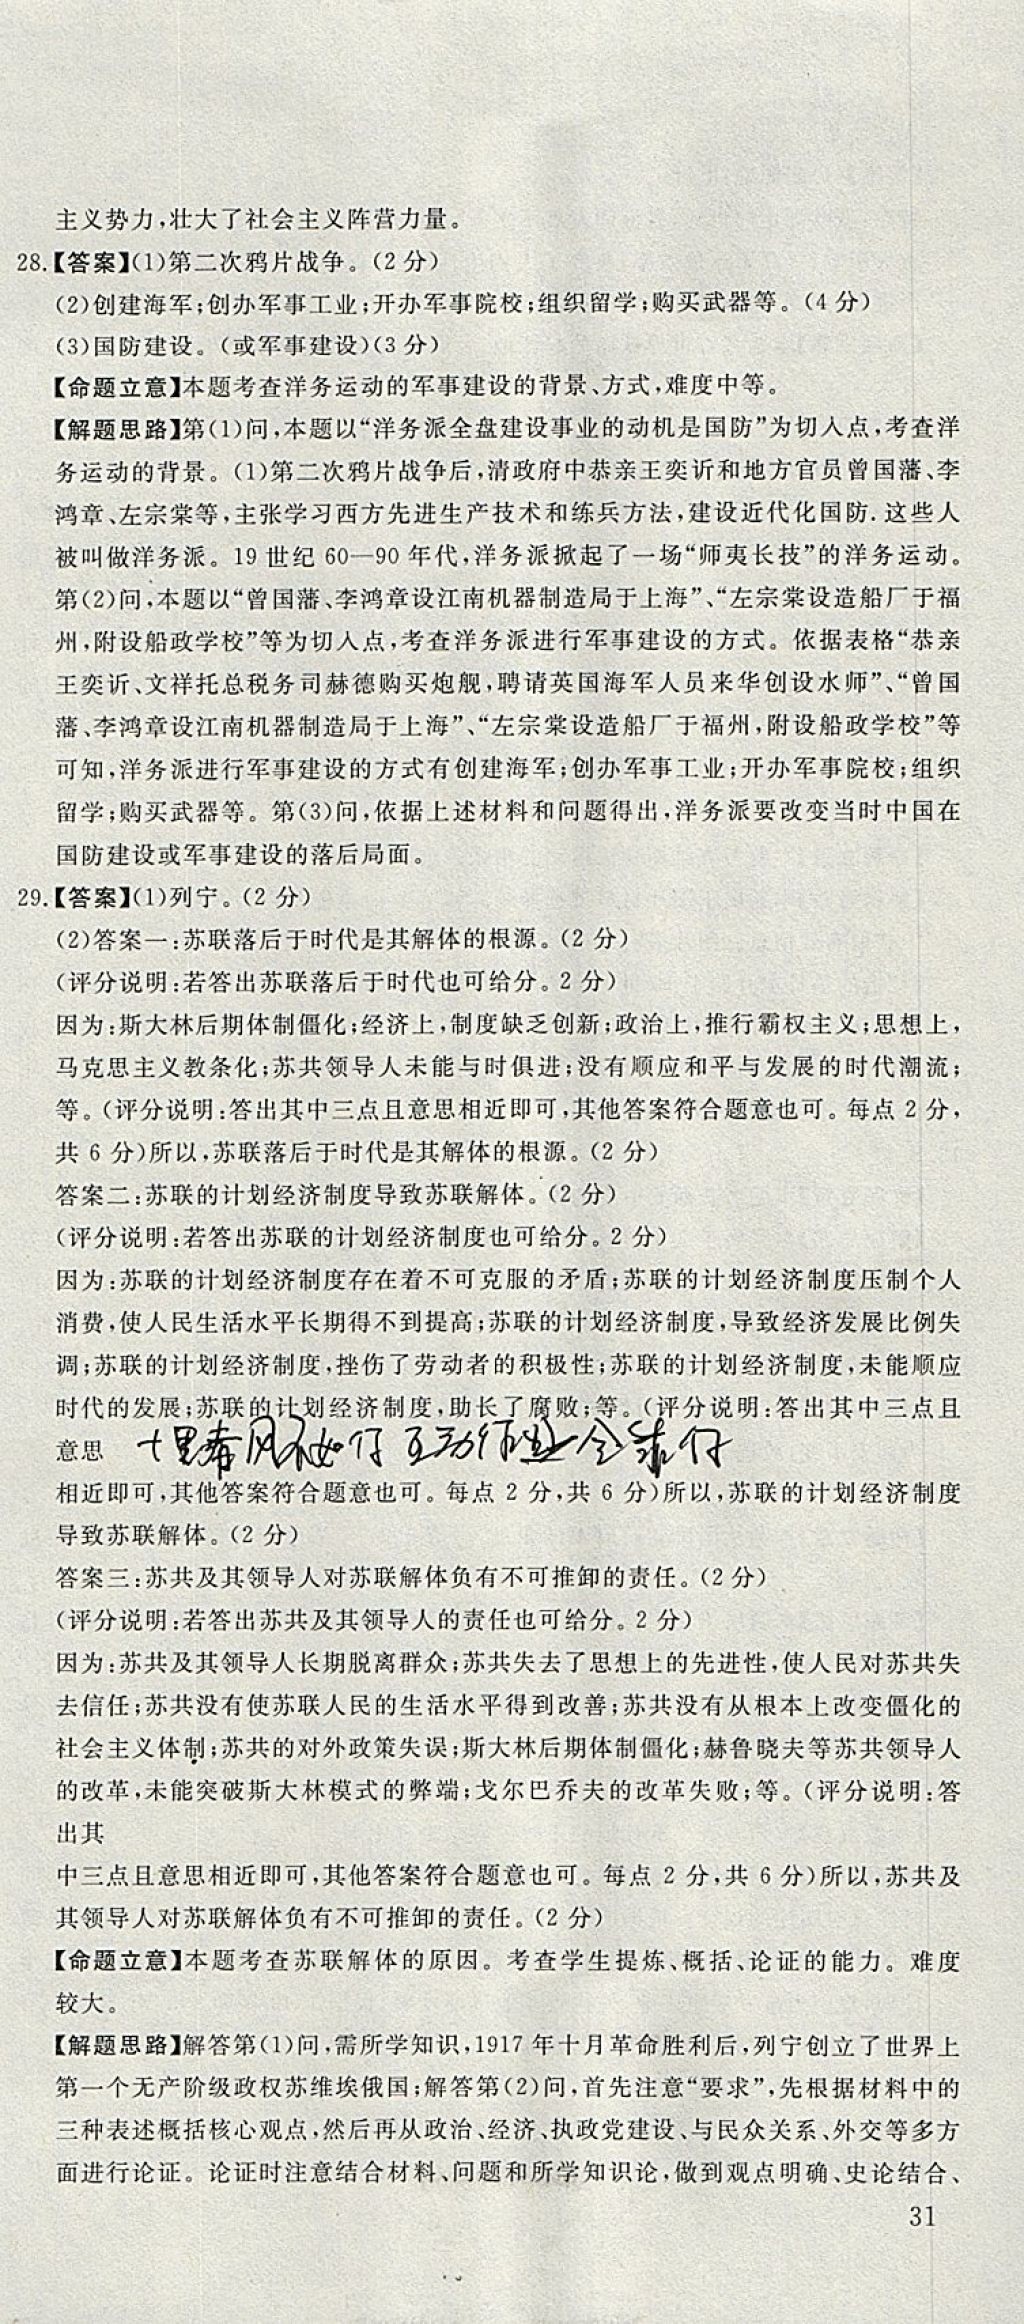 主义势力,壮大了社会主义阵营力量。
28.【答案】(1)第二次鸦片战争。(2 分)
(2)创建海军;创办军事工业;开办军事院校;组织留学;购买武器等。(4 分)
(3)国防建设。(或军事建设)(3 分)
【命题立意】本题考查洋务运动的军事建设的背景、方式,难度中等。
【解题思路】第(1)问,本题以“洋务派全盘建设事业的动机是国防”为切入点,考查洋
务运动的背景。(1)第二次鸦片战争后,清政府中恭亲王奕䜣和地方官员曾国藩、李
鸿章、左宗棠等,主张学习西方先进生产技术和练兵方法,建设近代化国防.这些人
被叫做洋务派。19 世纪 60—90 年代,洋务派掀起了一场“师夷长技”的洋务运动。
第(2)问,本题以“曾国藩、李鸿章设江南机器制造局于上海”、“左宗棠设造船厂于福
州,附设船政学校”等为切入点,考查洋务派进行军事建设的方式。依据表格“恭亲
王奕䜣、文祥托总税务司赫德购买炮舰,聘请英国海军人员来华创设水师”、“曾国
藩、李鸿章设江南机器制造局于上海”、“左宗棠设造船厂于福州,附设船政学校”等
可知,洋务派进行军事建设的方式有创建海军;创办军事工业;开办军事院校;组织
留学;购买武器等。第(3)问,依据上述材料和问题得出,洋务派要改变当时中国在
国防建设或军事建设的落后局面。
29.【答案】(1)列宁。(2 分)
(2)答案一:苏联落后于时代是其解体的根源。(2 分)
(评分说明:若答出苏联落后于时代也可给分。2 分)
因为:斯大林后期体制僵化;经济上,制度缺乏创新;政治上,推行霸权主义;思想上,
马克思主义教条化;苏共领导人未能与时俱进;没有顺应和平与发展的时代潮流;
等。(评分说明:答出其中三点且意思相近即可,其他答案符合题意也可。每点 2 分,
共 6 分)所以,苏联落后于时代是其解体的根源。(2 分)
答案二:苏联的计划经济制度导致苏联解体。(2 分)
(评分说明:若答出苏联的计划经济制度也可给分。2 分)
因为:苏联的计划经济制度存在着不可克服的矛盾;苏联的计划经济制度压制个人
消费,使人民生活水平长期得不到提高;苏联的计划经济制度,导致经济发展比例失
调;苏联的计划经济制度,挫伤了劳动者的积极性;苏联的计划经济制度,未能顺应
时代的发展;苏联的计划经济制度,助长了腐败;等。(评分说明:答出其中三点且
意思
相近即可,其他答案符合题意也可。每点 2 分,共 6 分)所以,苏联的计划经济制度
导致苏联解体。(2 分)
答案三:苏共及其领导人对苏联解体负有不可推卸的责任。(2 分)
(评分说明:若答出苏共及其领导人的责任也可给分。2 分)
因为:苏共及其领导人长期脱离群众;苏共失去了思想上的先进性,使人民对苏共失
去信任;苏共没有使苏联人民的生活水平得到改善;苏共没有从根本上改变僵化的
社会主义体制;苏共的对外政策失误;斯大林后期体制僵化;赫鲁晓夫等苏共领导人
的改革,未能突破斯大林模式的弊端;戈尔巴乔夫的改革失败;等。(评分说明:答
出其
中三点且意思相近即可,其他答案符合题意也可。每点 2 分,共 6 分)所以,苏共及
其领导人对苏联解体负有不可推卸的责任。(2 分)
【命题立意】本题考查苏联解体的原因。考查学生提炼、概括、论证的能力。难度
较大。
【解题思路】解答第(1)问,需所学知识,1917 年十月革命胜利后,列宁创立了世界上
第一个无产阶级政权苏维埃俄国;解答第(2)问,首先注意“要求”,先根据材料中的
三种表述概括核心观点,然后再从政治、经济、执政党建设、与民众关系、外交等多方
面进行论证。论证时注意结合材料、问题和所学知识论,做到观点明确、史论结合、
31